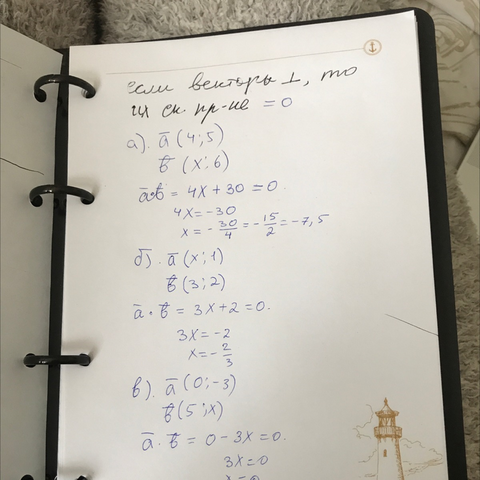 если векторы ⊥, то
их ск. пр-ие = 0
а). a̅ (4; 5)
b̅ (x; 6)
a̅·b̅ = 4x + 30 = 0.
4x = -30
x = -30/4 = -15/2 = -7,5
б). a̅ (x; 1)
b̅ (3; 2)
a̅ · b̅ = 3x + 2 = 0.
3x = -2
x = -2/3
в). a̅ (0; -3)
b̅ (5; x)
a̅ · b̅ = 0 - 3x = 0.
3x = 0
x = 0